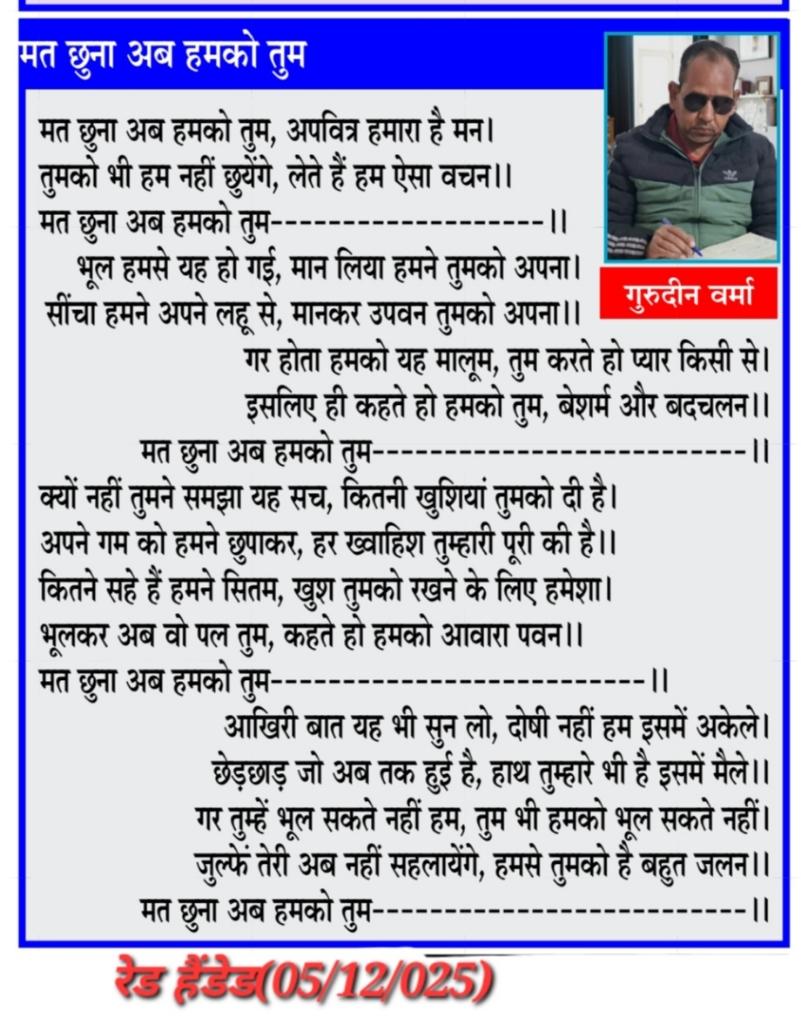 मत छुना अब हमको तुम
मत छुना अब हमको तुम, अपवित्र हमारा है मन।
तुमको भी हम नहीं छुयेंगे, लेते हैं हम ऐसा वचन।।
मत छुना अब हमको तुम-------------------।।
भूल हमसे यह हो गई, मान लिया हमने तुमको अपना।
सींचा हमने अपने लहू से, मानकर उपवन तुमको अपना।।
गुरुदीन वर्मा
गर होता हमको यह मालूम, तुम करते हो प्यार किसी से।
इसलिए ही कहते हो हमको तुम, बेशर्म और बदचलन।।
मत छुना अब हमको तुम--------------------------।।
क्यों नहीं तुमने समझा यह सच, कितनी खुशियां तुमको दी है।
अपने गम को हमने छुपाकर, हर ख्वाहिश तुम्हारी पूरी की है।।
कितने सहे हैं हमने सितम, खुश तुमको रखने के लिए हमेशा।
भूलकर अब वो पल तुम, कहते हो हमको आवारा पवन।।
मत छुना अब हमको तुम--------------------------।।
आखिरी बात यह भी सुन लो, दोषी नहीं हम इसमें अकेले।
छेड़छाड़ जो अब तक हुई है, हाथ तुम्हारे भी है इसमें मैले।।
गर तुम्हें भूल सकते नहीं हम, तुम भी हमको भूल सकते नहीं।
जुल्फें तेरी अब नहीं सहलायेंगे, हमसे तुमको है बहुत जलन।।
मत छुना अब हमको तुम--------------------------।।
रेड हैंडेड(05/12/025)